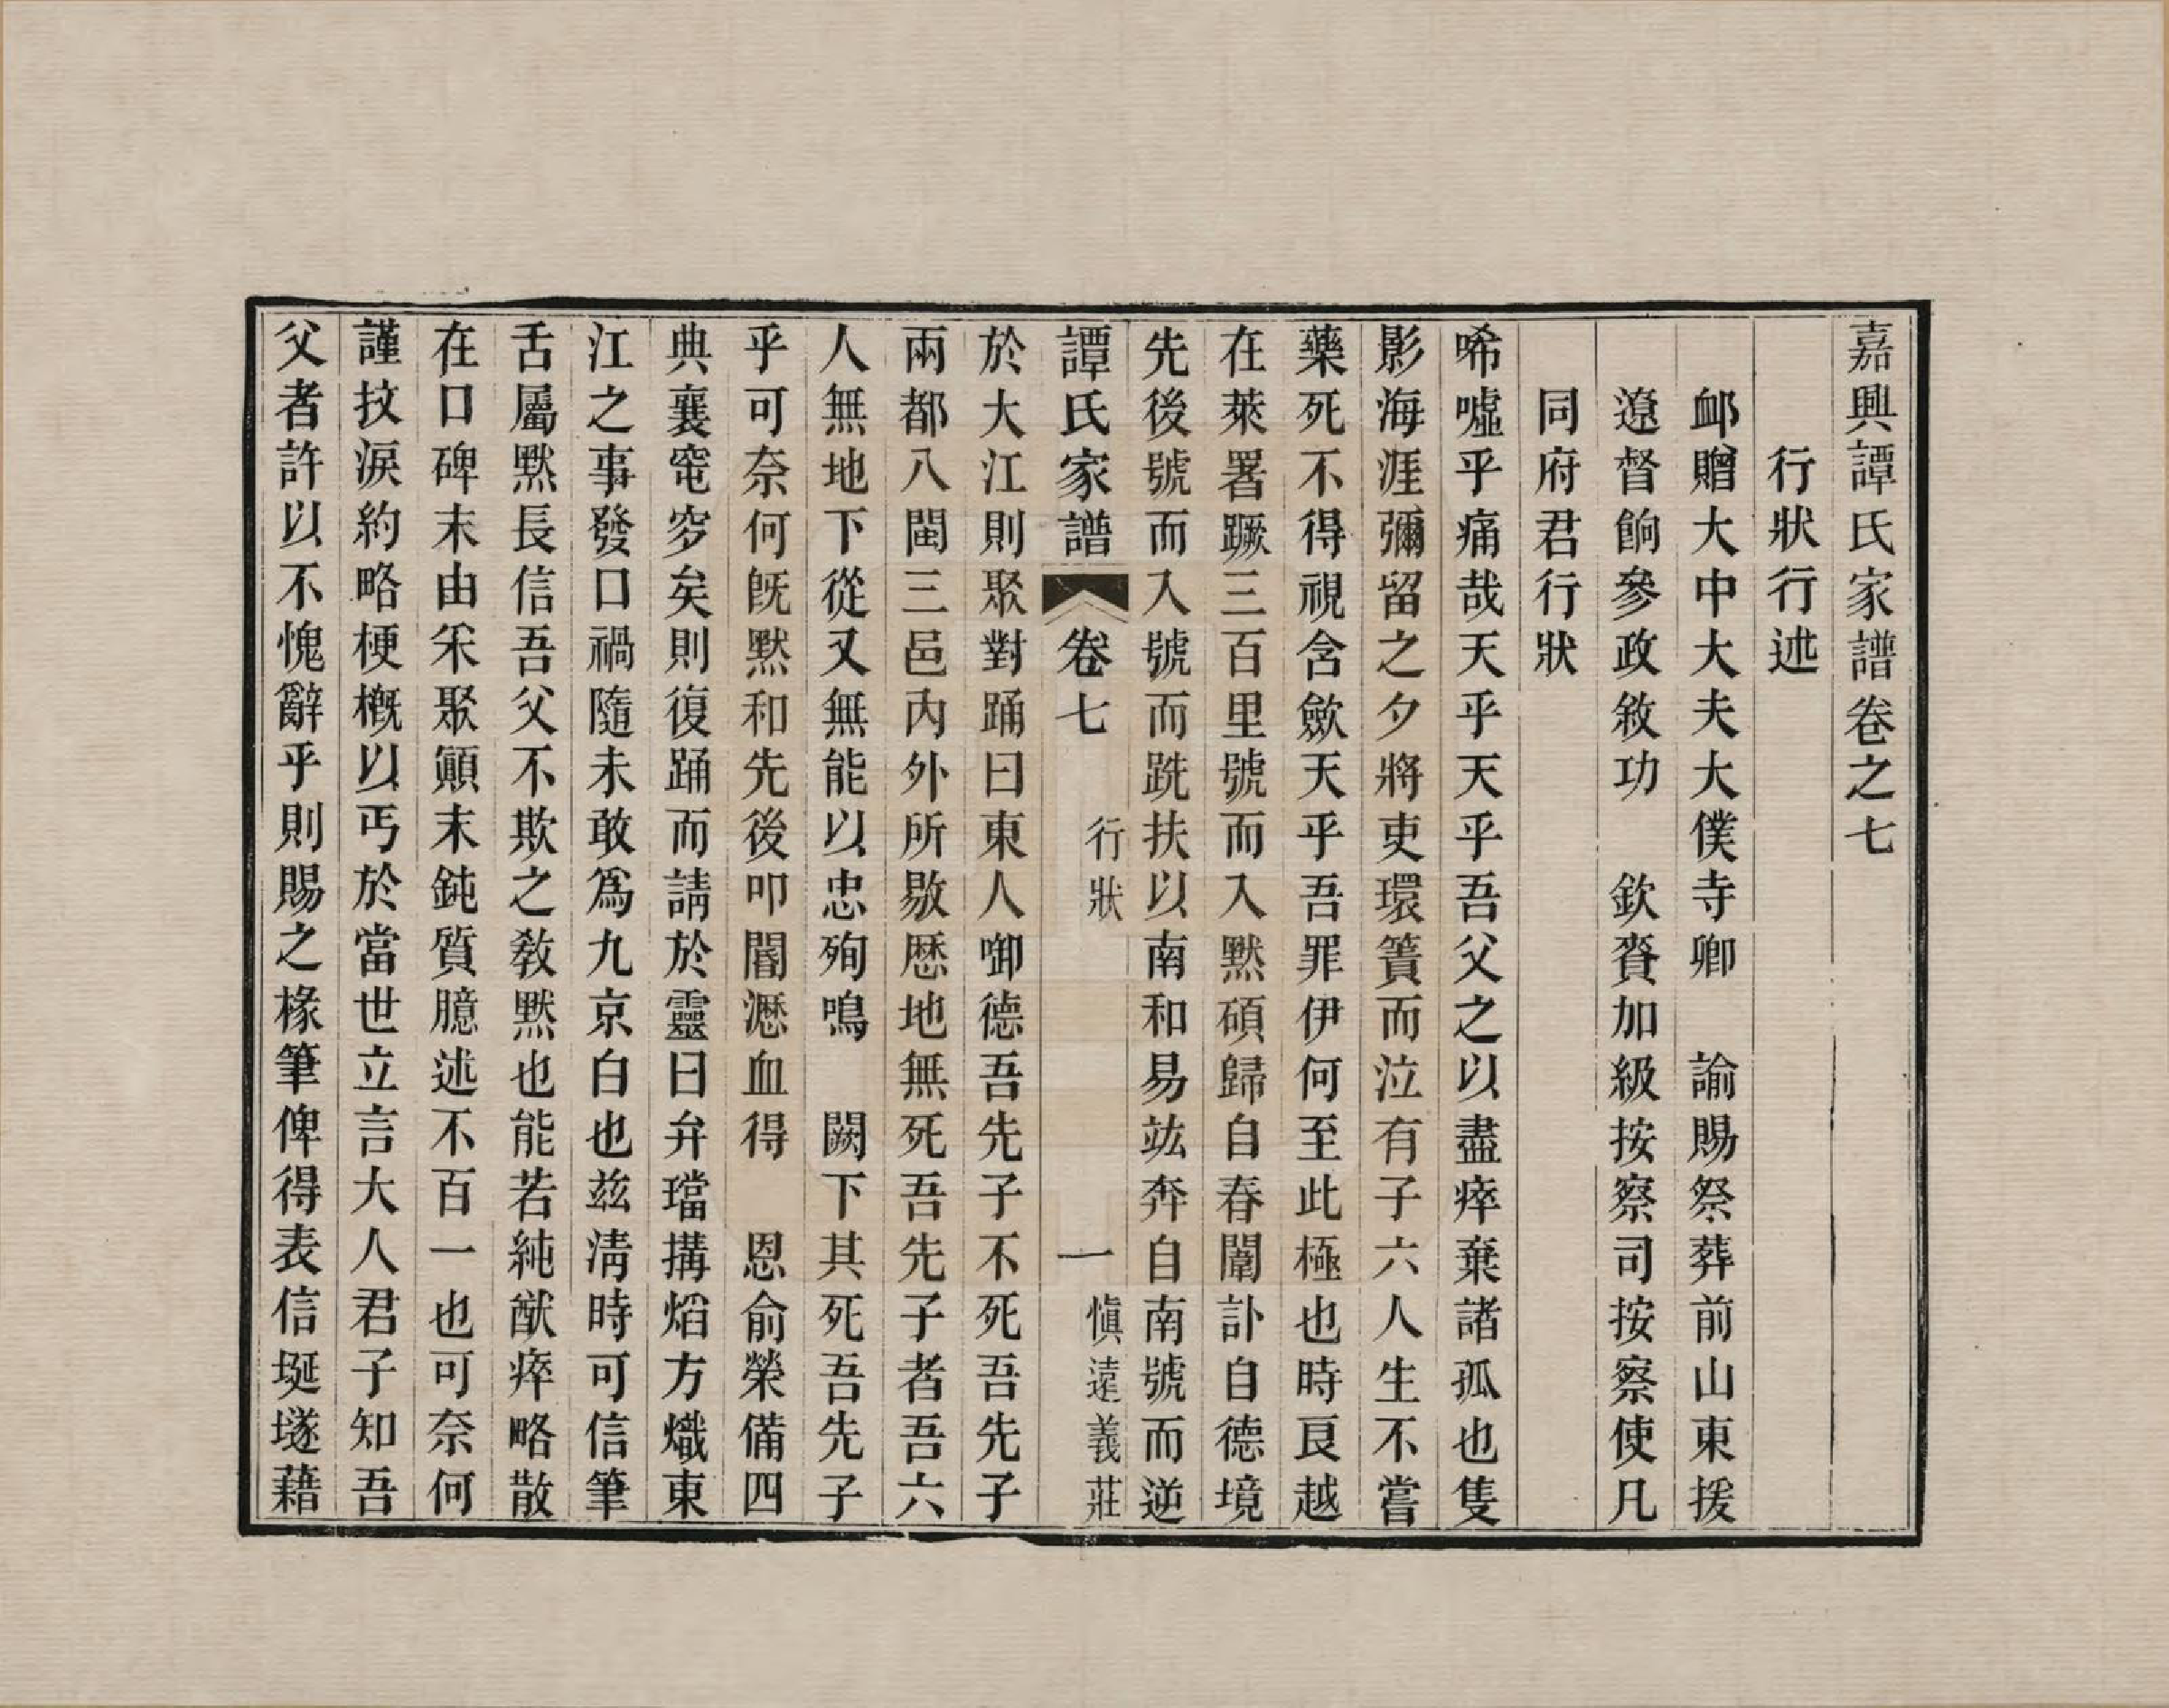 嘉興譚氏家譜卷之七
行狀行述
卹贈大中大夫大僕寺卿　諭賜祭葬前山東援
遼督餉參政敘功　欽賚加級按察司按察使凡
同府君行狀
唏噓乎痛哉天乎天乎吾父之以盡瘁棄諸孤也隻
影海涯彌留之夕將吏環簀而泣有子六人生不嘗
藥死不得視含歛天乎吾罪伊何至此極也時艮越
在萊署蹶三百里號而入黙碩歸自春闈訃自德境
先後號而入號而跣扶以南和易竑奔自南號而逆
譚氏家譜　卷七　行狀　一　愼遠義莊
於大江則聚對踊曰東人啣德吾先子不死吾先子
兩都八閩三邑內外所敭歷地無死吾先子者吾六
人無地下從又無能以忠殉鳴　闕下其死吾先子
乎可奈何旣黙和先後叩閽瀝血得　恩俞榮備四
典襄窀穸矣則復踊而請於靈曰弁璫搆焰方熾東
江之事發口禍隨未敢爲九京白也玆淸時可信筆
舌屬黙長信吾父不欺之敎黙也能若純猷瘁略散
在口碑末由釆聚顚末鈍質臆述不百一也可奈何
謹抆淚約略梗槪以丐於當世立言大人君子知吾
父者許以不愧辭乎則賜之椽筆俾得表信埏墜藉